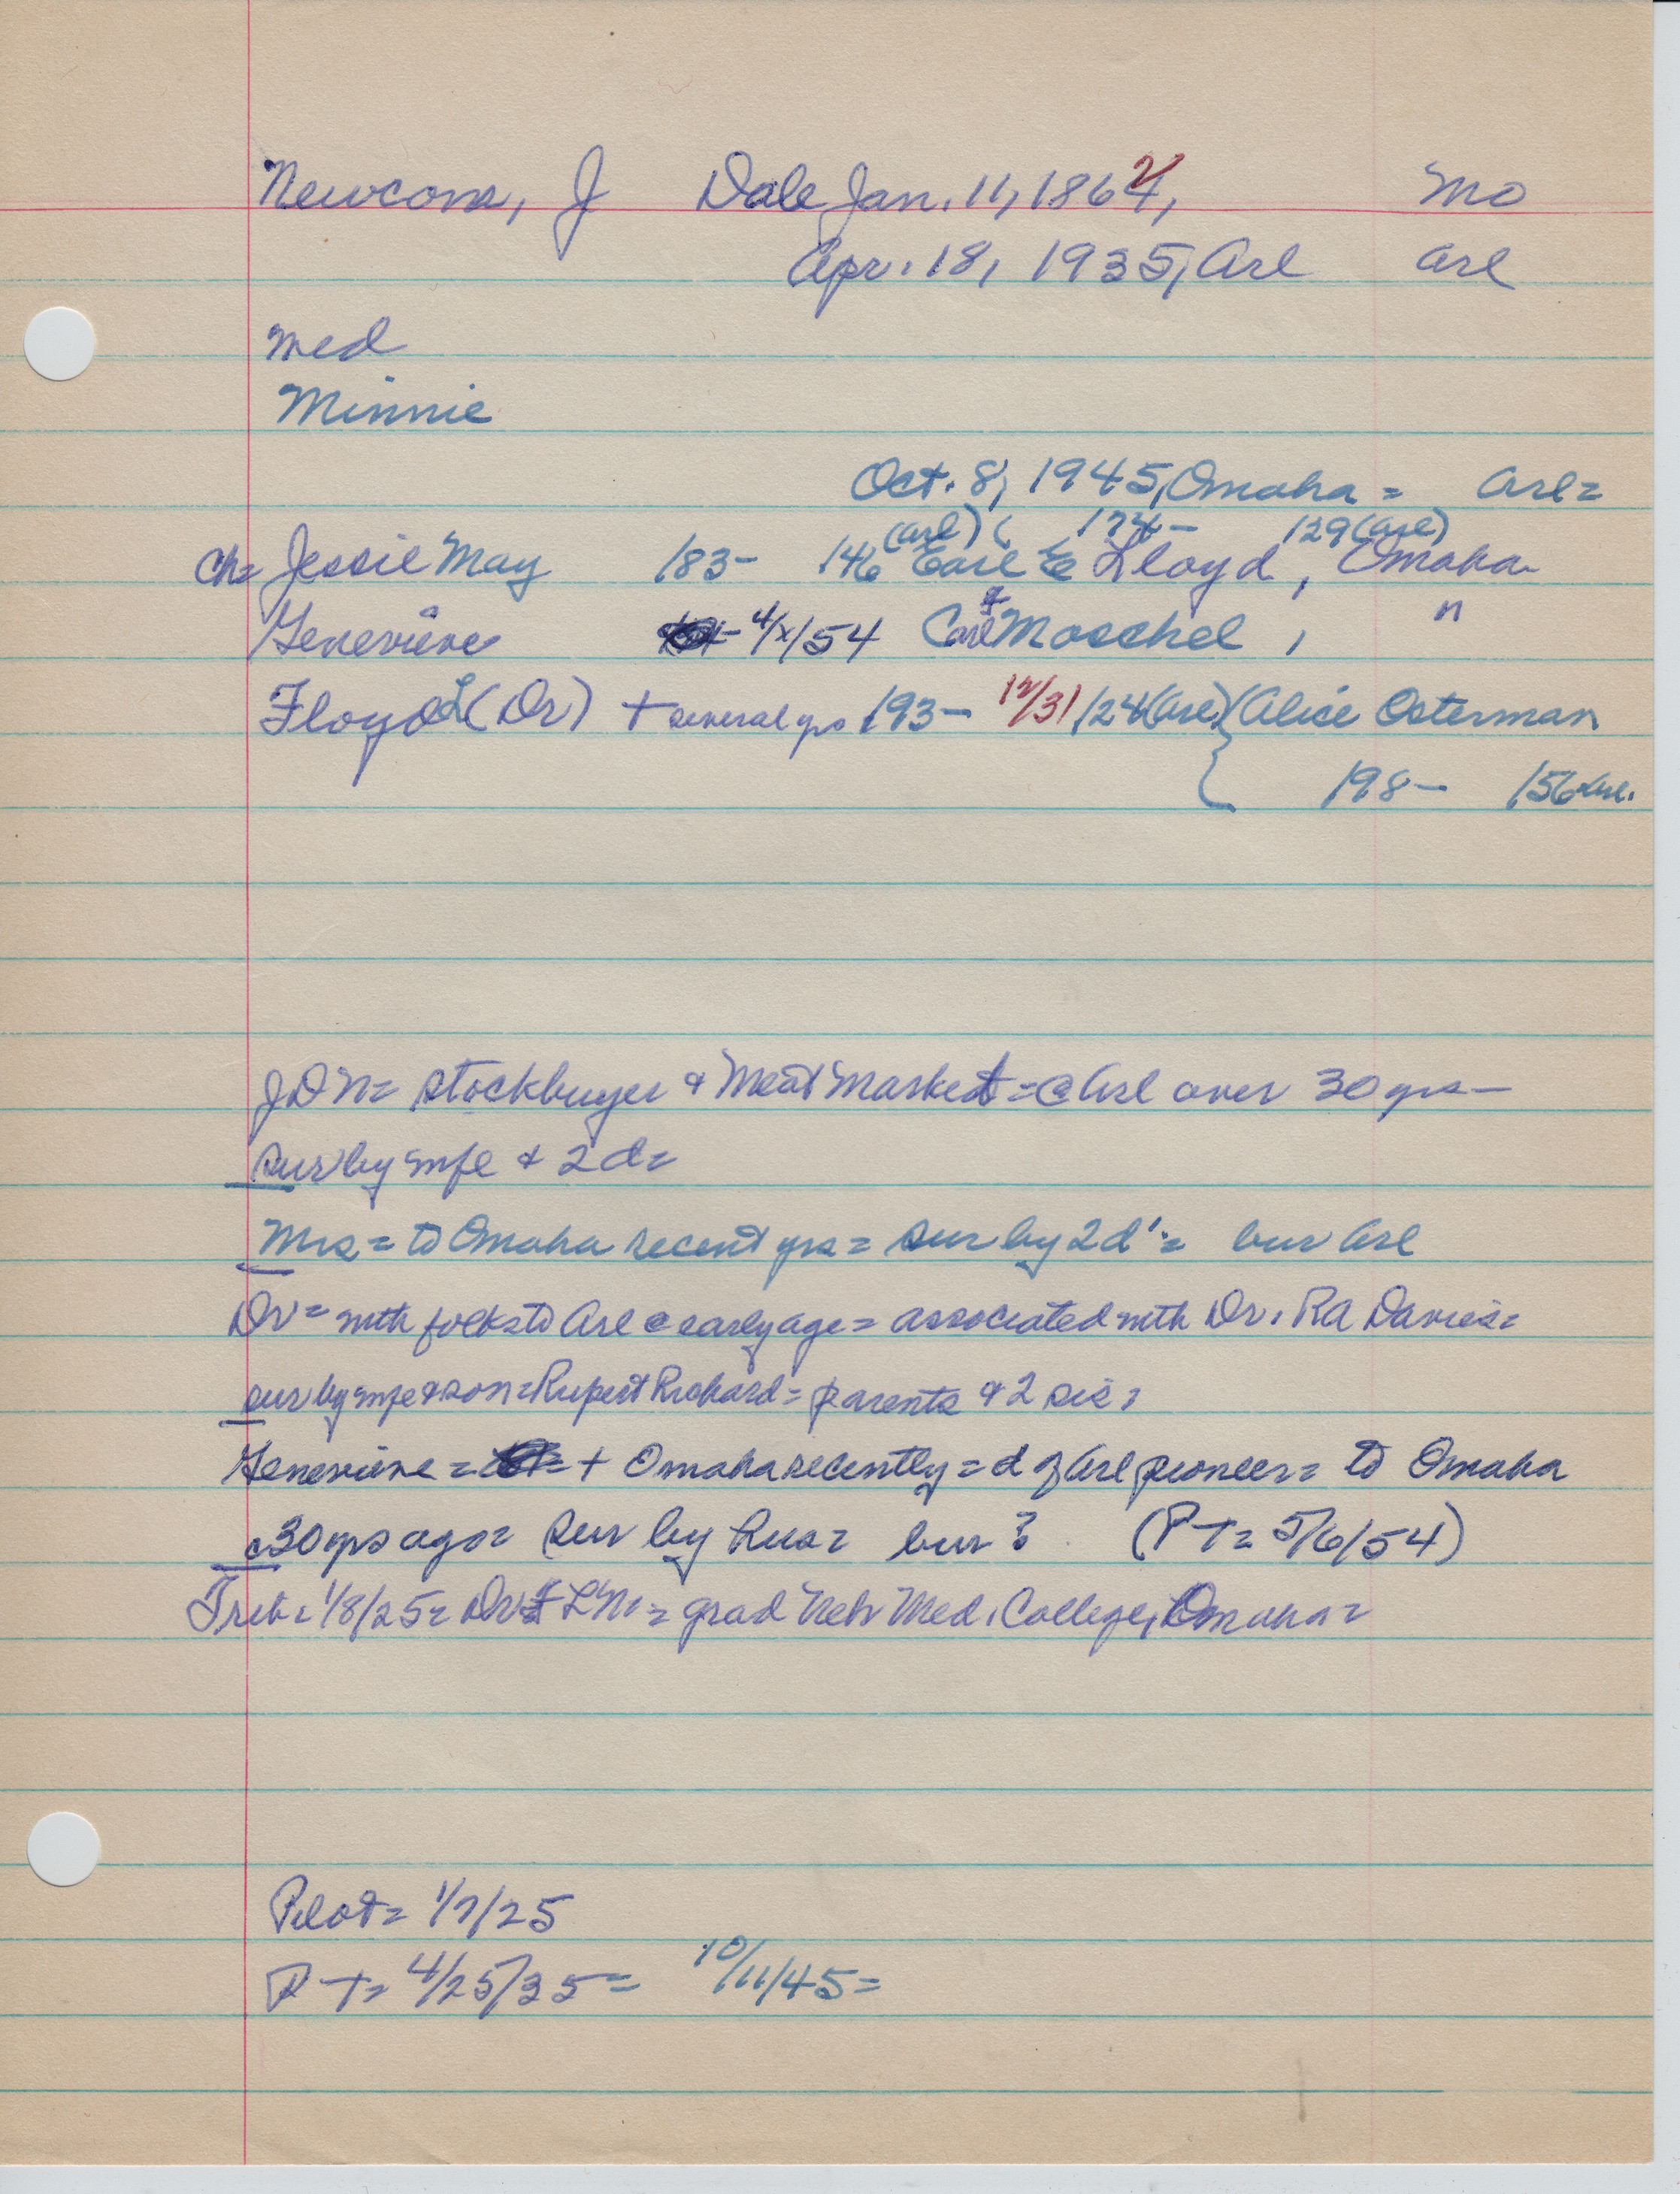 Newcom, J Dale Jan. 11, 1862, Mo
Apr. 18, 1935, Arl Arl
Med
Minnie
Oct. 8, 1945, Omaha = Arl =
(Arl) ( 174- 129 (Arl)
Ch= Jessie May 183- 146 Earl E Lloyd, Omaha
Genevieve - 4/x/54 Carl F Moschel, "
Floyd L (Dr) + several yrs 193- 12/31/24 (Arl) (Alice Osterman
198- 156 Arl.
JDN = stockbuyer & Meat Market = @ Arl over 30 yrs -
sur by wife & 2 d =
Mrs = to Omaha recent yrs = sur by 2 d's = bur Arl
Dr = with folks to Arl @ early age = associated with Dr. RA Davies =
sur by wife & son = Rupert Richard = parents & 2 sis =
Genevieve = + Omaha recently = d of Arl pioneer = to Omaha
c 30 yrs ago = sur by hus = bur ? (PT = 5/6/54)
Trib = 1/8/25 = Dr F L N = grad Neb Med. College, Omaha =
Pilot = 1/7/25
PT = 4/25/35 = 10/11/45 =